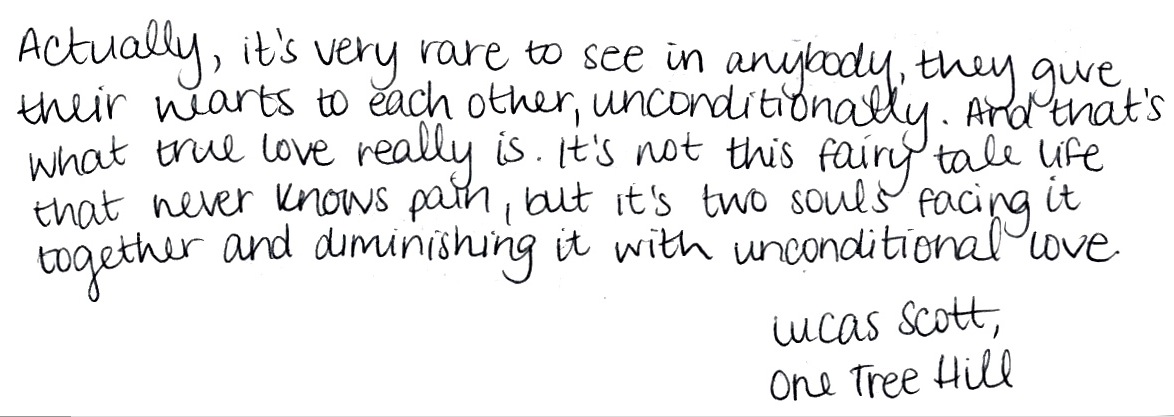 Actually, it's very rare to see in anybody, they give
their hearts to each other, unconditionally. And that's
what true love really is. It's not this fairy tale life
that never knows pain, but it's two souls facing it
together and diminishing it with unconditional love.
Lucas Scott,
One Tree Hill